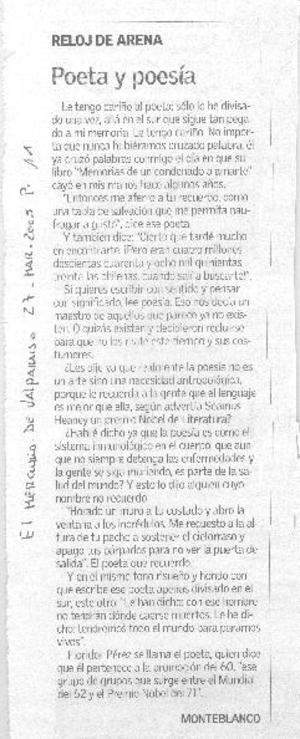 RELOJ DE ARENA
Poeta y poesía
Le tengo cariño al poeta; sólo lo he divisa-
do una vez, allá en el sur que sigue tan pega-
do a mi memoria. Le tengo cariño. No impor-
ta que nunca hubiéramos cruzado palabra, él
ya cruzó palabras conmigo el día en que su
libro "Memorias de un condenado a amarte"
cayó en mis manos hace algunos años.
"Entonces me aferro a tu recuerdo, como
una tabla de salvación que me permita nau-
fragar a gusto", dice ese poeta.
Y también dice: "Cierto que tardé mucho
en encontrarte. ¡Pero eran cuatro millones
doscientas cuarenta y ocho mil quinientas
treinta las chilenas, cuando salí a buscarte!".
Si quieres escribir con sentido y pensar
con significado, lee poesía. Eso nos decía un
maestro de aquellos que parece ya no exis-
ten. O quizás existan y decidieron recluirse
para que no los irrite este tiempo y sus cos-
tumbres.
¿Les dije ya que realmente la poesía no es
un arte sino una necesidad antropológica,
porque le recuerda a la gente que el lenguaje
es mejor que ella, según advertía Seamus
Heaney un premio Nobel de Literatura?
¿Habré dicho ya que la poesía es como el
sistema inmunológico en el cuerpo, que aun-
que no siempre detenga las enfermedades y
la gente se siga muriendo, es parte de la sa-
lud del mundo? Y esto lo dijo alguien cuyo
nombre no recuerdo.
"Horado un muro a tu costado y abro la
ventana a los incrédulos. Me recuesto a la al-
tura de tu pecho a sostener el cielorraso y
apago tus párpados para no ver la puerta de
salida". El poeta que recuerdo.
Y en el mismo tono risueño y hondo con
que escribe ese poeta apenas divisado en el
sur, este otro: "Le han dicho: con ese hombre
no tendrán dónde caerse muertos. Le he di-
cho: tendremos todo el mundo para pararnos
vivos".
Floridor Pérez se llama el poeta, quien dice
que él pertenece a la promoción del 60, "ese
grupo de grupos que surge entre el Mundial
del 62 y el Premio Nobel del 71".
MONTEBLANCO
El MERCURIO DE VALPARAISO 27-MAR-2005 P. 11